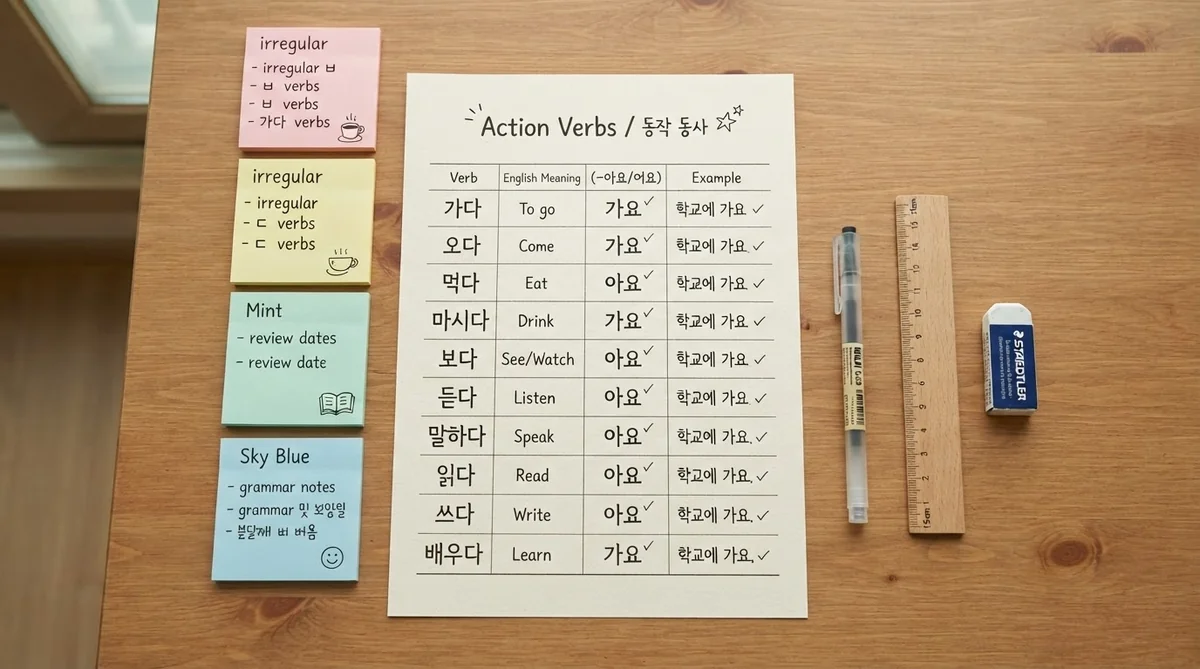 irregular
- irregular ㅂ
- ㅂ verbs
- ㅂ verbs
- 가다 verbs
irregular
- irregular
- ㄷ verbs
- ㄷ verbs
Mint
- review dates
- review date
Sky Blue
- grammar notes
- grammar 및
Action Verbs / 동작 동사
Verb English Meaning (-아요/어요) Example
가다 To go 가요✓ 학교에 가요 ✓
오다 Come 가요✓ 학교에 가요. ✓
먹다 Eat 아요✓ 학교에 가요 ✓
마시다 Drink 가요✓ 학교에 가요 ✓
보다 See/Watch 아요✓ 학교에 가요. ✓
듣다 Listen 아요✓ 학교에 가요. ✓
말하다 Speak 아요✓ 학교에 가요. ✓
읽다 Read 아요✓ 학교에 가요. ✓
쓰다 Write 아요✓ 학교에 가요. ✓
배우다 Learn 가요✓ 학교에 가요. ✓
STAEDTLER